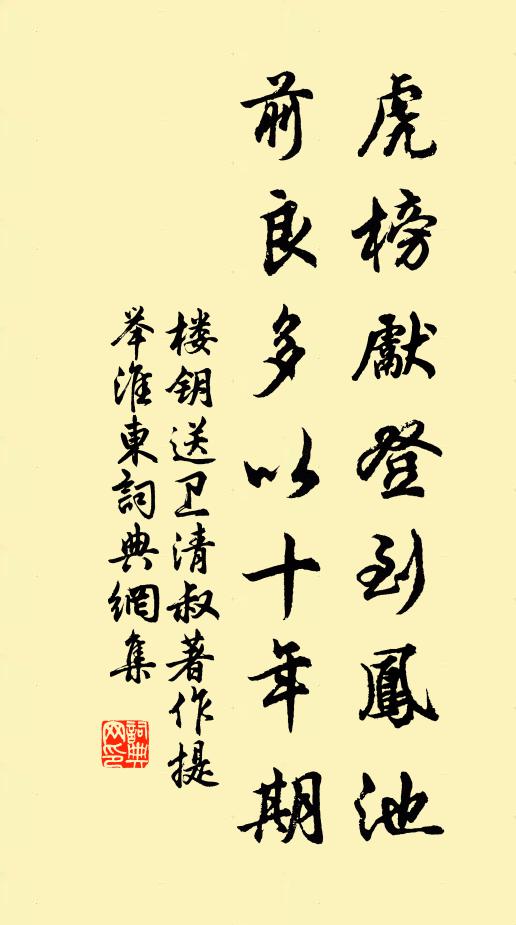 虎榜獻登到鳳池
前良多以十年期
楼钥送卫清叔著作提
举淮東詞典網集
詞典
网印